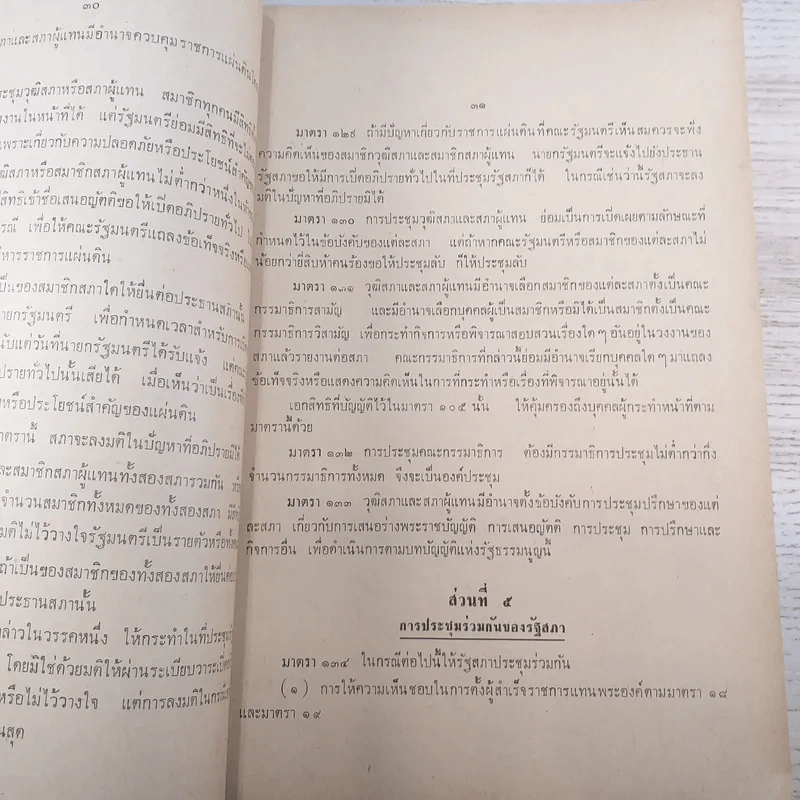 ๓๐
ภาและสภาผู้แทนมีอำนาจควบคุมราชการแผ่นดินโดย
ประชุมวุฒิสภาหรือสภาผู้แทน สมาชิกทุกคนมีสิทธิ
งานในหน้าที่ได้ แต่รัฐมนตรีย่อมมีสิทธิที่จะไม่
เพราะเกี่ยวกับความปลอดภัยหรือประโยชน์สำคัญของ
ฒิสภาหรือสภาผู้แทนไม่ต่ำกว่าหนึ่งในห้า
สิทธิเข้าชื่อเสนอญัตติขอให้เปิดอภิปรายทั่วไป
รณี เพื่อให้คณะรัฐมนตรีแถลงข้อเท็จจริงหรือ
หารราชการแผ่นดิน
เป็นของสมาชิกสภาใดให้ยื่นต่อประธานสภานั้น
ายกรัฐมนตรี เพื่อกำหนดเวลาสำหรับการเปิด
นับแต่วันที่นายกรัฐมนตรีได้รับแจ้ง แต่คณะ
ปรายทั่วไปนั้นเสียได้ เมื่อเห็นว่าเป็นเรื่อง
หรือประโยชน์สำคัญของแผ่นดิน
าตรานี้ สภาจะลงมติในปัญหาที่อภิปรายมิได้
ละสมาชิกสภาผู้แทนทั้งสองสภารวมกัน
จำนวนสมาชิกทั้งหมดของทั้งสองสภา
มติไม่ไว้วางใจรัฐมนตรีเป็นรายตัวหรือทั้งคณะ
ถ้าเป็นของสมาชิกของทั้งสองสภาให้ยื่นต่อ
ประธานสภานั้น
ล่าวในวรรคหนึ่ง ให้กระทำในที่ประชุม
โดยมิใช่ด้วยมติให้ผ่านระเบียบวาระเปิด
หรือไม่ไว้วางใจ แต่การลงมติในกรณี
นสุด
๓๑
มาตรา ๑๒๙ ถ้ามีปัญหาเกี่ยวกับราชการแผ่นดินที่คณะรัฐมนตรีเห็นสมควรจะฟัง
ความคิดเห็นของสมาชิกวุฒิสภาและสมาชิกสภาผู้แทน นายกรัฐมนตรีจะแจ้งไปยังประธาน
รัฐสภาขอให้มีการเปิดอภิปรายทั่วไปในที่ประชุมรัฐสภาก็ได้ ในกรณีเช่นว่านี้รัฐสภาจะลง
มติในปัญหาที่อภิปรายมิได้
มาตรา ๑๓๐ การประชุมวุฒิสภาและสภาผู้แทน ย่อมเป็นการเปิดเผยตามลักษณะที่
กำหนดไว้ในข้อบังคับของแต่ละสภา แต่ถ้าหากคณะรัฐมนตรีหรือสมาชิกของแต่ละสภาไม่
น้อยกว่ายี่สิบห้าคนร้องขอให้ประชุมลับ ก็ให้ประชุมลับ
มาตรา ๑๓๑ วุฒิสภาและสภาผู้แทนมีอำนาจเลือกสมาชิกของแต่ละสภาตั้งเป็นคณะ
กรรมาธิการสามัญ และมีอำนาจเลือกบุคคลผู้เป็นสมาชิกหรือมิได้เป็นสมาชิกตั้งเป็นคณะ
กรรมาธิการวิสามัญ เพื่อกระทำกิจการหรือพิจารณาสอบสวนเรื่องใด ๆ อันอยู่ในวงงานของ
สภาแล้วรายงานต่อสภา คณะกรรมาธิการที่กล่าวนี้ย่อมมีอำนาจเรียกบุคคลใด ๆ มาแถลง
ข้อเท็จจริงหรือแสดงความคิดเห็นในการที่กระทำหรือเรื่องที่พิจารณาอยู่นั้นได้
เอกสิทธิที่บัญญัติไว้ในมาตรา ๑๐๕ นั้น ให้คุ้มครองถึงบุคคลผู้กระทำหน้าที่ตาม
มาตรานี้ด้วย
มาตรา ๑๓๒ การประชุมคณะกรรมาธิการ ต้องมีกรรมาธิการประชุมไม่ต่ำกว่ากึ่ง
จำนวนกรรมาธิการทั้งหมด จึงจะเป็นองค์ประชุม
มาตรา ๑๓๓ วุฒิสภาและสภาผู้แทนมีอำนาจตั้งข้อบังคับการประชุมปรึกษาของแต่
ละสภา เกี่ยวกับการเสนอร่างพระราชบัญญัติ การเสนอญัตติ การประชุม การปรึกษาและ
กิจการอื่น เพื่อดำเนินการตามบทบัญญัติแห่งรัฐธรรมนูญนี้
ส่วนที่ ๕
การประชุมร่วมกันของรัฐสภา
มาตรา ๑๓๔ ในกรณีต่อไปนี้ให้รัฐสภาประชุมร่วมกัน
(๑) การให้ความเห็นชอบในการตั้งผู้สำเร็จราชการแทนพระองค์ตามมาตรา ๑๘
และมาตรา ๑๙